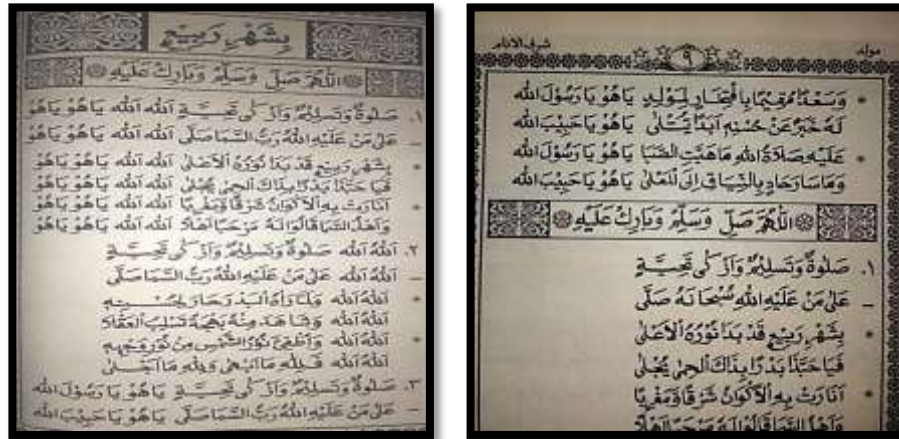 بِشَهْرِ رَبِيْعِ
اَللّٰهُمَّ صَلِّ وَسَلِّمْ وَبَارِكْ عَلَيْهِ
١. صَلٰوةٌ وَتَسْلِيْمٌ وَاَزْكٰى تَحِيَّةٍ اَللّٰه اَللّٰه يَاهُوْ يَاهُوْ
ـ عَلٰى مَنْ عَلَيْهِ اللّٰهُ رَبُّ السَّمَا صَلّٰى اَللّٰه اَللّٰه يَاهُوْ يَاهُوْ
• بِشَهْرِ رَبِيْعٍ قَدْ بَدَا نُوْرُهُ الْاَعْلٰى اَللّٰه اَللّٰه يَاهُوْ يَاهُوْ
فَيَا حَبَّذَا بَدْرًا بِذَاكَ الْحِمٰى يُجْلٰى اَللّٰه اَللّٰه يَاهُوْ يَاهُوْ
• اَنَارَتْ بِهِ الْاَكْوَانُ شَرْقًا وَمَغْرِبًا اَللّٰه اَللّٰه يَاهُوْ يَاهُوْ
وَاَهْلُ السَّمَا قَالُوْا لَهُ مَرْحَبًا اَهْلًا اَللّٰه اَللّٰه يَاهُوْ يَاهُوْ
٢. اَللّٰهُ اَللّٰه صَلٰوةٌ وَتَسْلِيْمٌ وَاَزْكٰى تَحِيَّةٍ
ـ اَللّٰهُ اَللّٰه عَلٰى مَنْ عَلَيْهِ اللّٰهُ رَبُّ السَّمَا صَلّٰى
• اَللّٰهُ اَللّٰه وَلَمَّا رَاٰهُ الْبَدْرُ حَارَ لِحُسْنِهِ
اَللّٰهُ اَللّٰه وَشَاهَدَ مِنْهُ بَهْجَةً تَسْلُبُ الْعَقْلَا
• اَللّٰهُ اَللّٰه وَاَطْفِئَ نُوْرُ الشَّمْسِ مِنْ نُوْرِ وَجْهِهِ
اَللّٰهُ اَللّٰه فَلِلّٰهِ مَا اَبْهٰى وَلِلّٰهِ مَا اَجْلٰى
٣. صَلٰوةٌ وَتَسْلِيْمٌ وَاَزْكٰى تَحِيَّةٍ يَاهُوْ يَا رَسُوْلَ اللّٰه
ـ عَلٰى مَنْ عَلَيْهِ اللّٰهُ رَبُّ السَّمَا صَلّٰى يَاهُوْ يَاحَبِيْبَ اللّٰه
مولد ٩ شرف الانام
• وَسَعْدًا مُقِيْمًا بِافْتِخَارٍ لِمَوْلِدٍ يَاهُوْ يَا رَسُوْلَ اللّٰه
لَهُ خَبَرٌ عَنْ حُسْنِهِ اَبَدًا يُتْلٰى يَاهُوْ يَاحَبِيْبَ اللّٰه
• عَلَيْهِ صَلَاةُ اللّٰهِ مَا هَبَّتِ الصَّبَا يَاهُوْ يَا رَسُوْلَ اللّٰه
وَمَا سَارَ حَادٍ بِالنِّيَاقِ اِلَى الْمَعْلٰى يَاهُوْ يَاحَبِيْبَ اللّٰه
اَللّٰهُمَّ صَلِّ وَسَلِّمْ وَبَارِكْ عَلَيْهِ
١. صَلٰوةٌ وَتَسْلِيْمٌ وَاَزْكٰى تَحِيَّةٍ
ـ عَلٰى مَنْ عَلَيْهِ اللّٰهِ سُبْحَانَهُ صَلّٰى
• بِشَهْرِ رَبِيْعٍ قَدْ بَدَا نُوْرُهُ الْاَعْلٰى
فَيَا حَبَّذَا بَدْرًا بِذَاكَ الْحِمٰى يُجْلٰى
• اَنَارَتْ بِهِ الْاَكْوَانُ شَرْقًا وَمَغْرِبًا
وَاَهْلُ السَّمَا قَالُوْا لَهُ مَرْحَبًا اَهْلًا